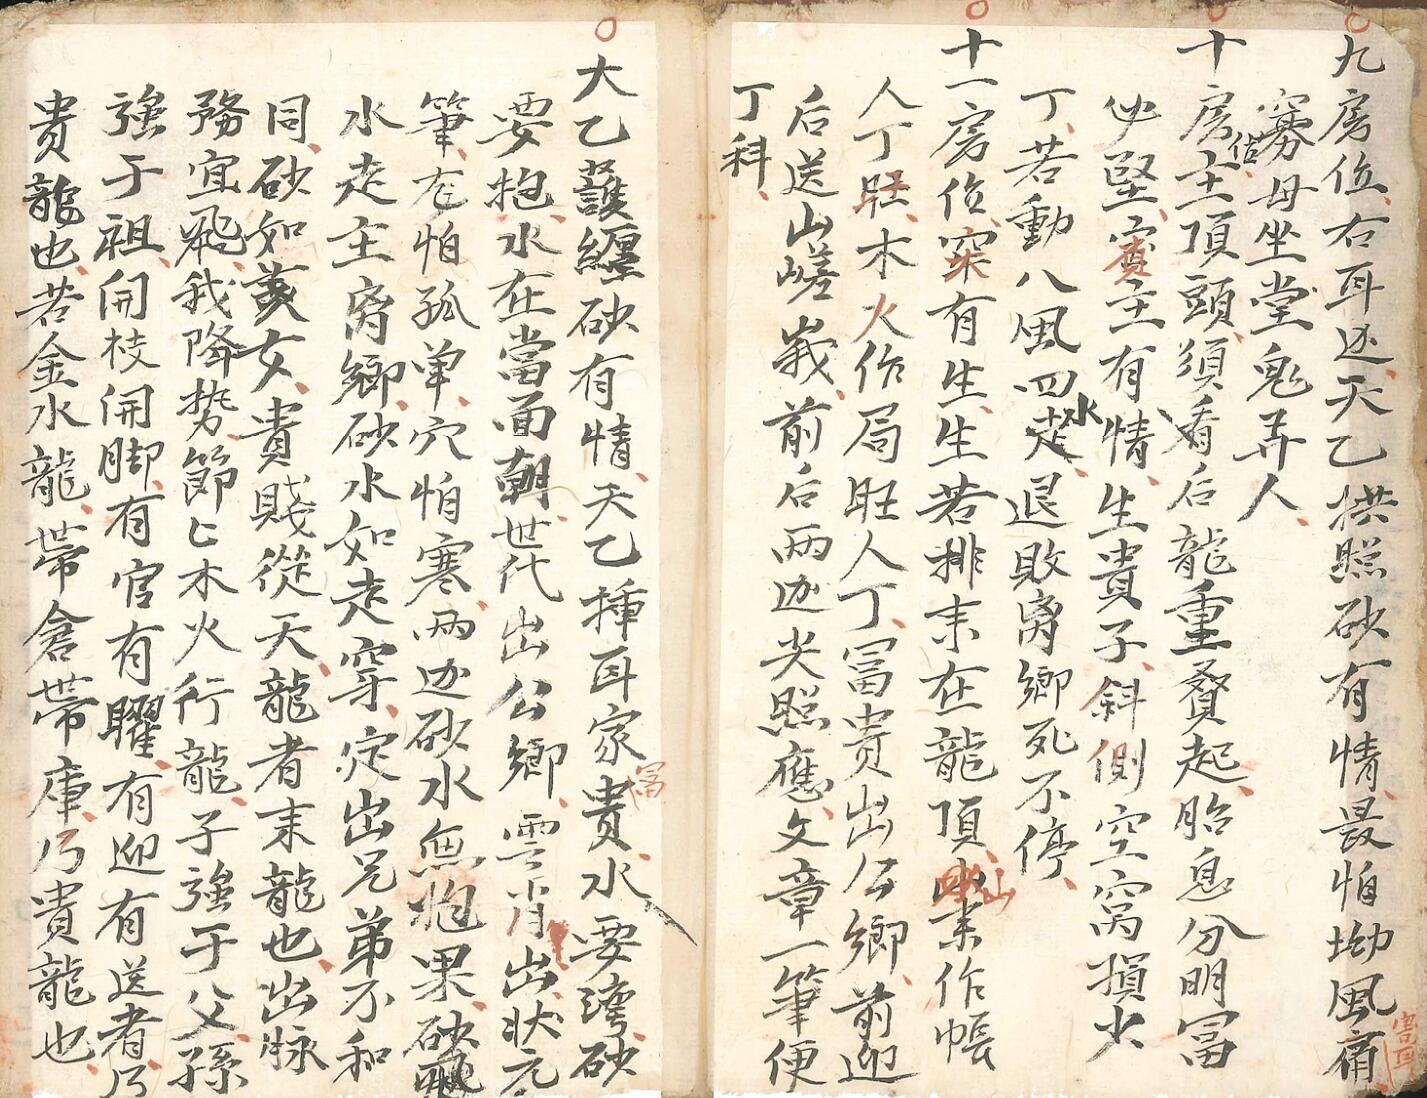 九房位、右耳边、天乙拱照砂有情、最怕坳風痛、害耳
寡母坐堂鬼弄人、
十房佔主頂頭、須看后龍重賛起、胎息分明冨
必堅、賓主有情、生貴子、斜側空窩損少
丁、若動八風四水走、退敗离鄉死不停、
十一房位穴有生、生若排來在龍頂、山來作帳
人丁旺、木火作局旺人丁、冨贵出公鄉、前迎
后送山嵯峩、前后兩边尖照應、文章一筆便
丁科、
大乙護纏砂有情、天乙挿耳家冨貴、水要灣、砂
要抱、水在當面朝、世代出公鄉、雲肖出状元
筆、左怕孤单、穴怕寒、两边砂水無抱果、砂飛
水走主离鄉、砂水如走穿、定出兄弟不和
同、砂如美女、貴賤從天、龍者來龍也、出脉
務宜飛、我降势、節匕木火行龍、子強于父、孫
強于祖、開枝開脚、有官有曜、有迎有送者、乃
貴龍也、若金水龍、帶倉帶庫、乃貴龍也、